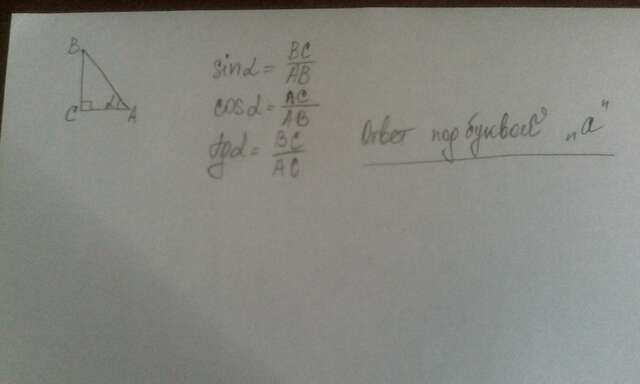 B
C
α
A
sinα = BC/AB
cosα = AC/AB
tgα = BC/AC
Ответ под буквой „а"